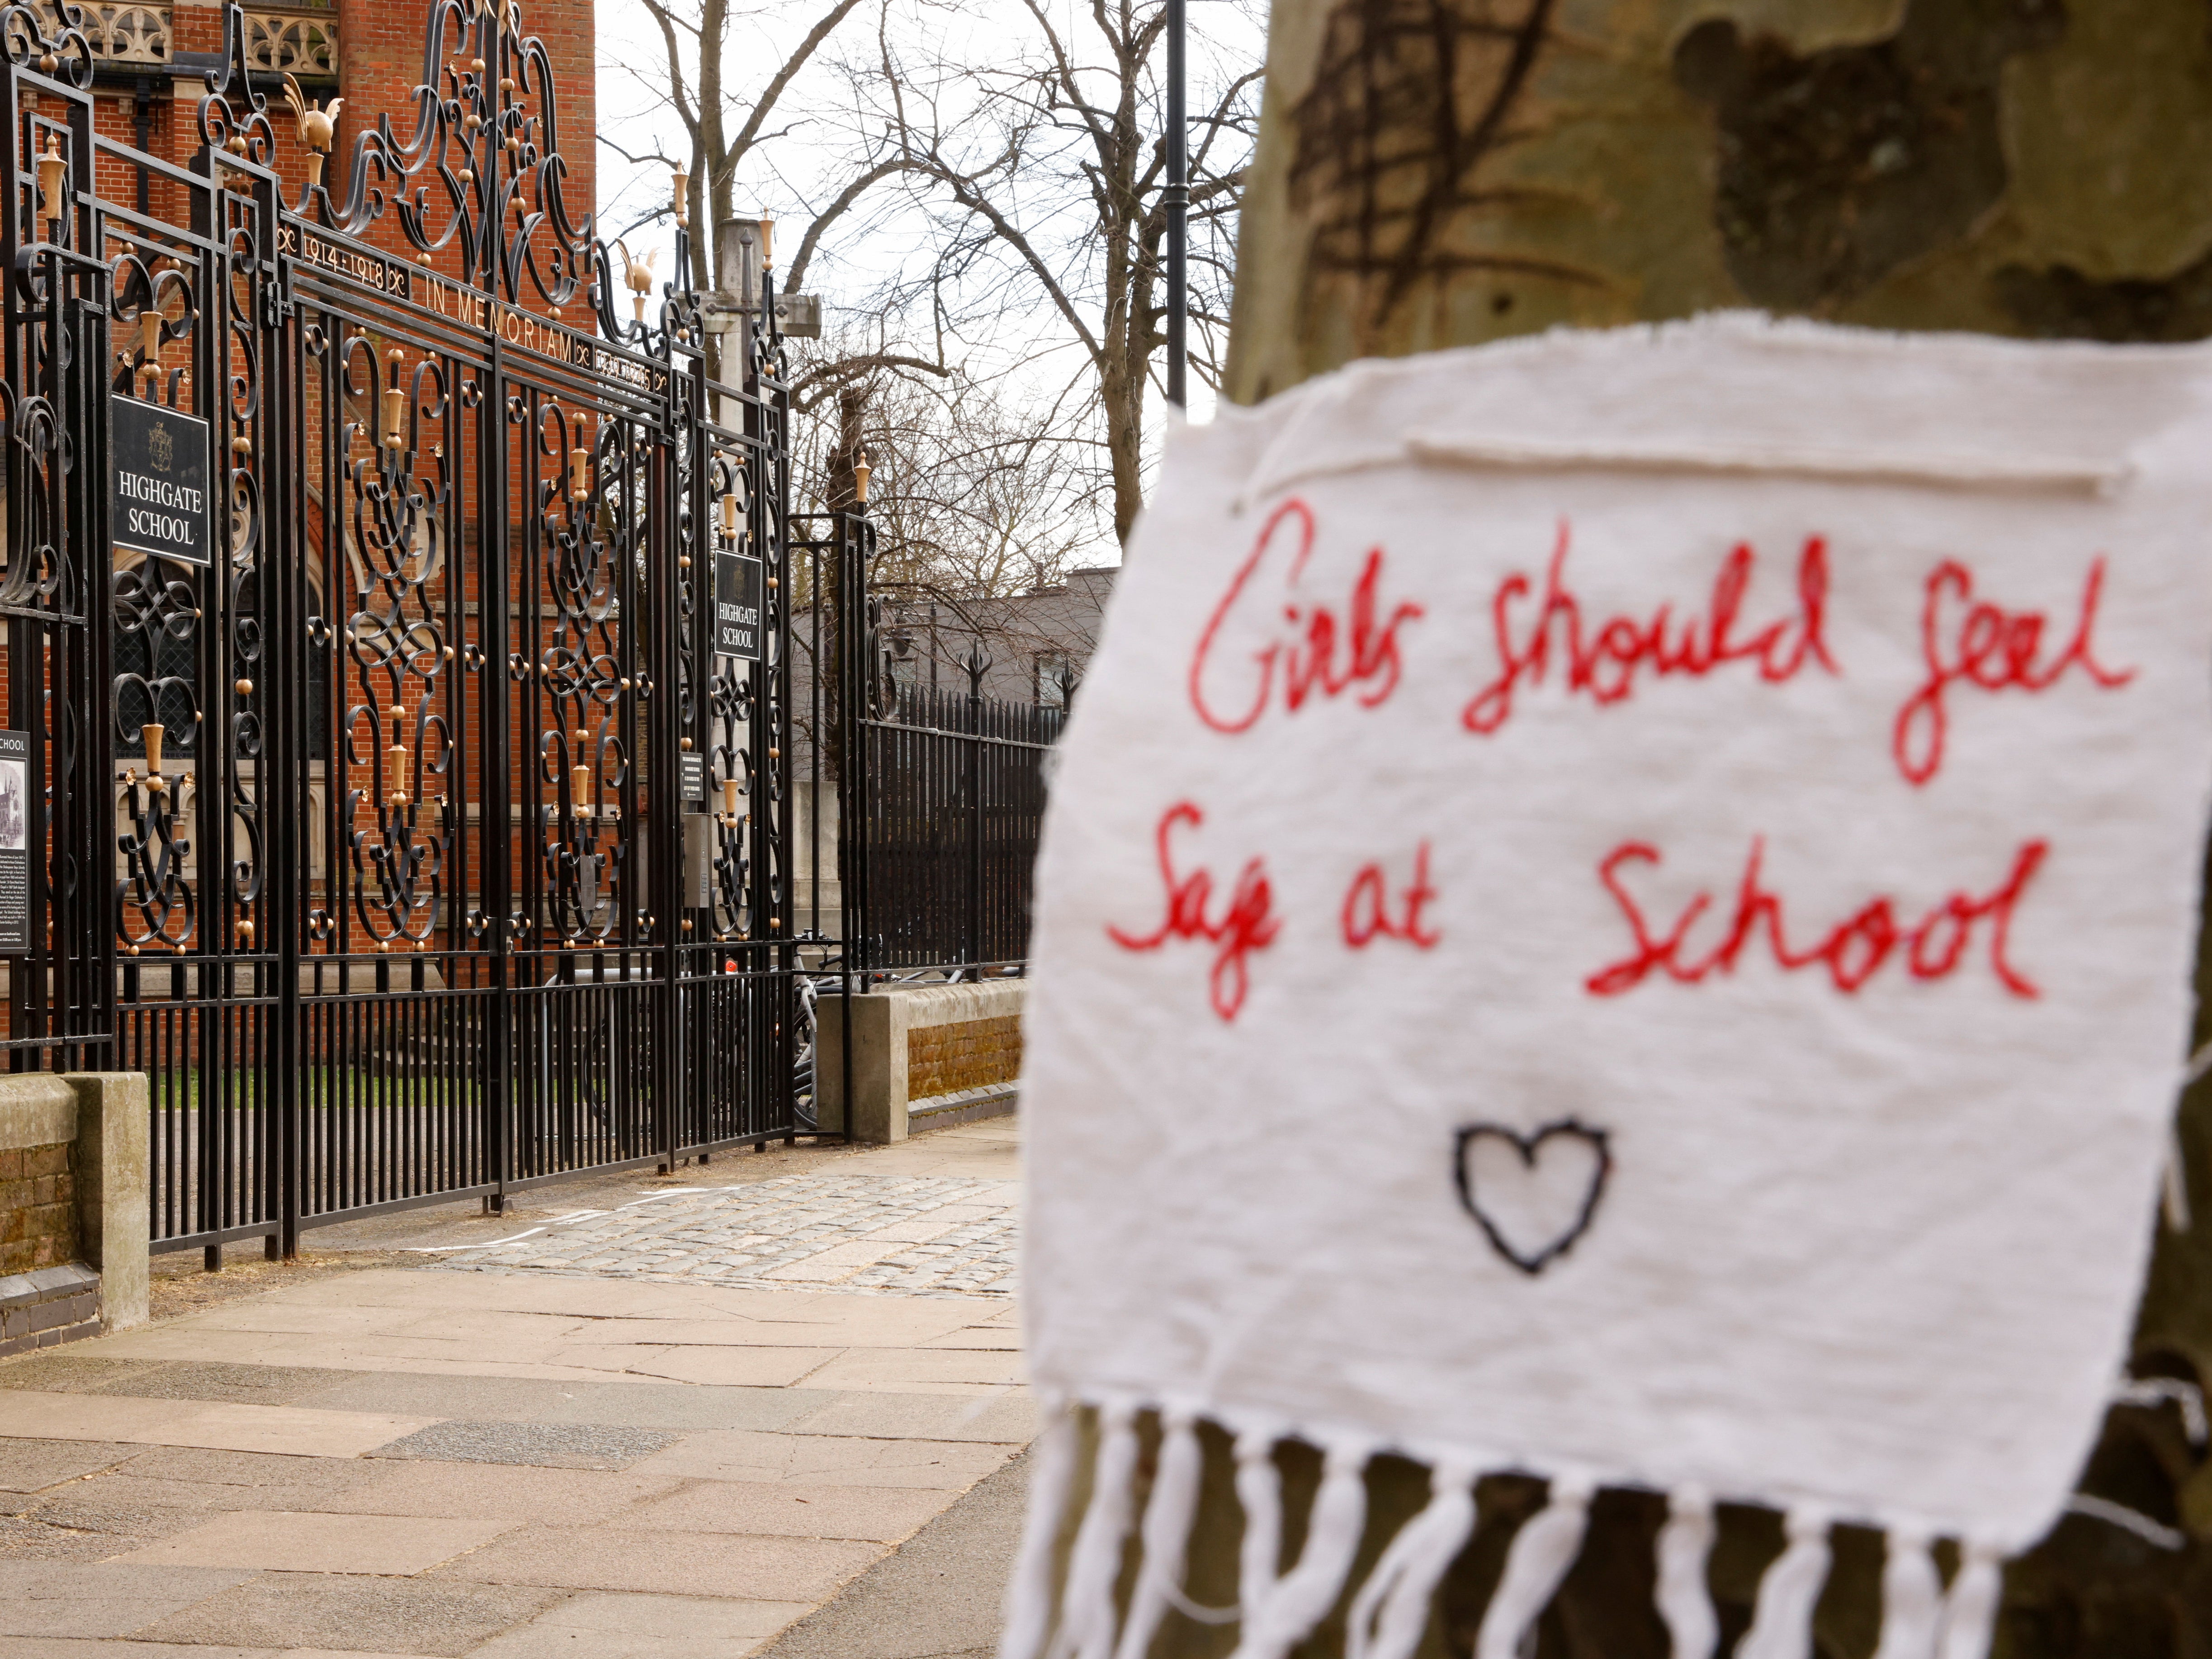 1914-1918 IN MEMORIAM
HIGHGATE
SCHOOL
HIGHGATE
SCHOOL
CHOOL
Girls should feel
Safe at School